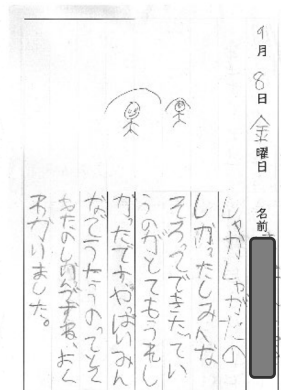 9月8日金曜日 名前
しゃかしゃかたの
しかったしみんな
そろってできたってい
うのがとてもうれし
かったですやっぱいみん
なでうたうのってとて
もたのしいんですね、よく
わかりました。